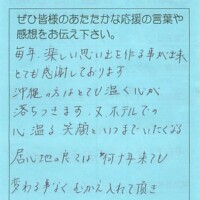 ぜひ皆様のあたたかな応援の言葉や
感想をお伝え下さい。
毎年、楽しい思い出を作る事が出来
とても感謝しております
沖縄の方はとても温く心が
落ちつきます、又、ホテルでの
心温る笑顔といつまでいたくなる
居心地の良さは、何十年来ても
変わる事なくむかえ入れて頂き